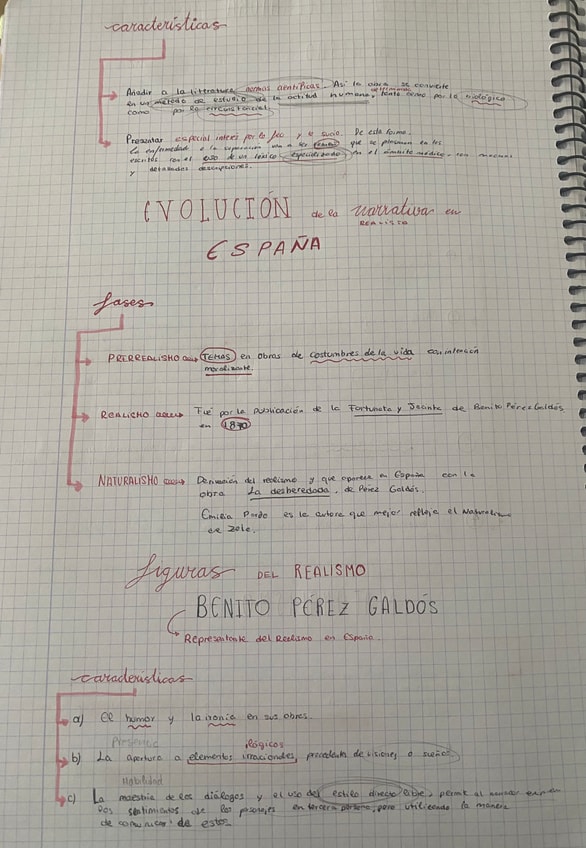 características
Añadir a la literatura normas científicas. Así la obra se convierte
en un método de estudio de la actitud humana, tanto por lo biológico
como por lo circunstancial.
Presentar especial interés por lo feo y lo sucio. De esta forma
la enfermedad o la van a ser que se plasman en los
escritos con el uso de un léxico especializado en el ámbito médico, con
y detalladas descripciones.
EVOLUCIÓN de la narrativa en
REALISTA
ESPAÑA
fases
PRERREALISMO TEMAS en obras de costumbres de la vida con intención
moralizante.
REALISMO Fué por la publicación de la Fortunata y Jacinta de Benito Pérez Galdós
en 1870
NATURALISMO Derivación del realismo y que aparece en España con la
obra La desheredada, de Pérez Galdós.
Emilia Pardo es la autora que mejor refleja el Naturalismo
de Zola.
figuras DEL REALISMO
BENITO PÉREZ GALDÓS
Representante del Realismo en España.
características
a) El humor y la ironía en sus obras.
Presencia ilógicos
b) La apertura a elementos irracionales, procedente de visiones o sueños
Habilidad
c) La maestría de los diálogos y el uso del estilo directo libre, permite al narrador
los sentimientos de los personajes en tercera persona, pero utilizando la manera
de comunicar de estos.